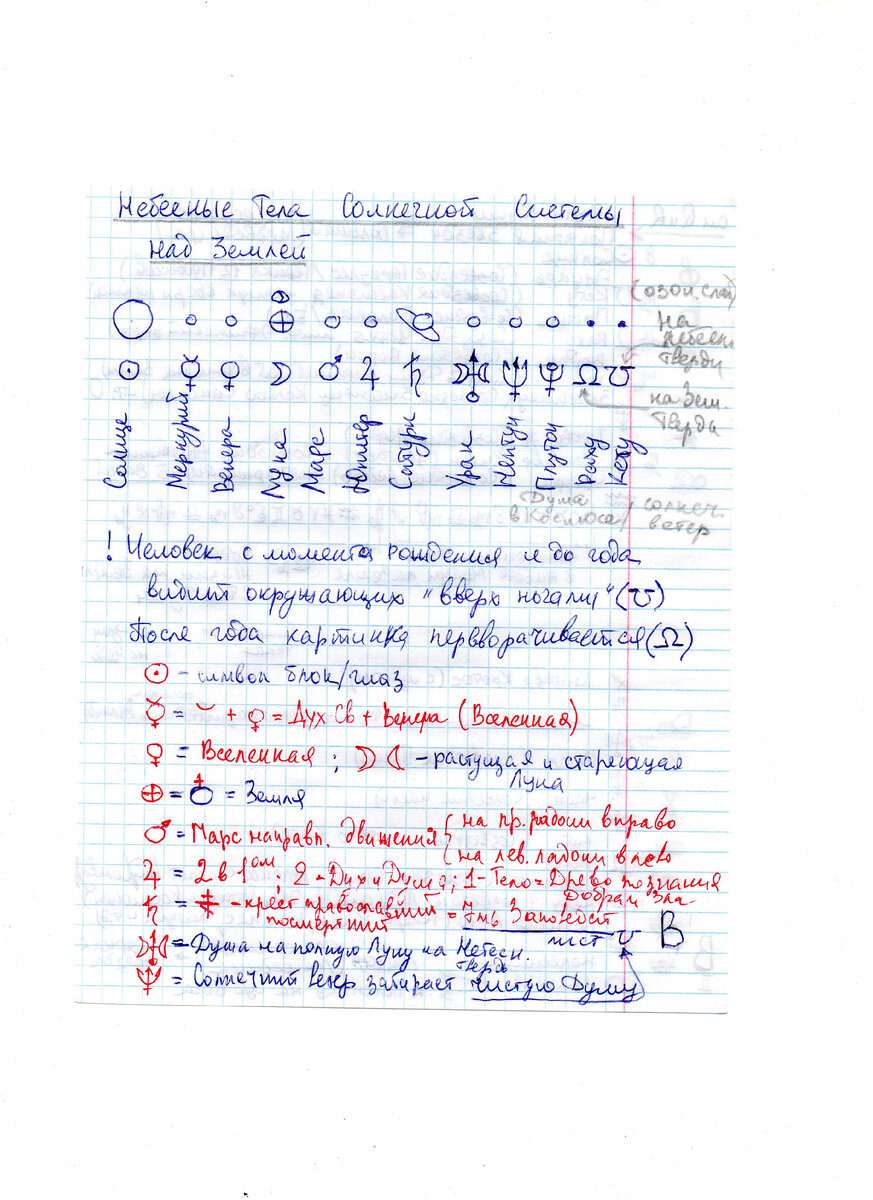 Небесные Тела Солнечной Системы
над Землей
(озон. слой)
на небесн. тверди
☉ ☿ ♀ ☽ ♂ ♃ ♄ ♅ ♆ ☊ ☋
на Зем. Тверди
Солнце Меркурий Венера Луна Марс Юпитер Сатурн Уран Нептун Плутон Раху Кету
Душа в Космоса / солнеч. ветер
! Человек с момента рождения и до года
видит окружающих "вверх ногами" (☋)
После года картинка переворачивается (☊)
☉ - символ блок/глаз
☿ = ⌣ + ♀ = Дух Св + Венера (Вселенная)
♀ = Вселенная ; ☽ ☾ - растущая и стареющая
Луна
⊕ = ♁ = Земля
♂ = Марс направл. движения { на пр. ладони вправо
на лев. ладони влево
♃ = 2 в 1ом ; 2 - Дух и Душа ; 1 - Тело = Древо познания
Добра и Зла
♄ = ǂ - крест православный = 7мь Заповедей
посмертный
лист ☋ В
♅ = Душа на полную Луну на Небесн.
твердь
♆ = Солнечный ветер забирает чистую Душу